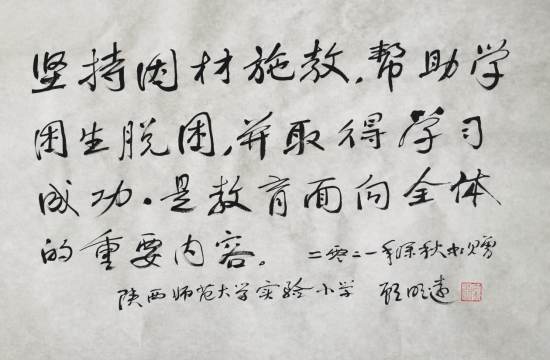 坚持因材施教，帮助学
困生脱困，并取得学习
成功。是教育面向全体
的重要内容。二零二一年深秋书赠
陕西师范大学实验小学 顾明远